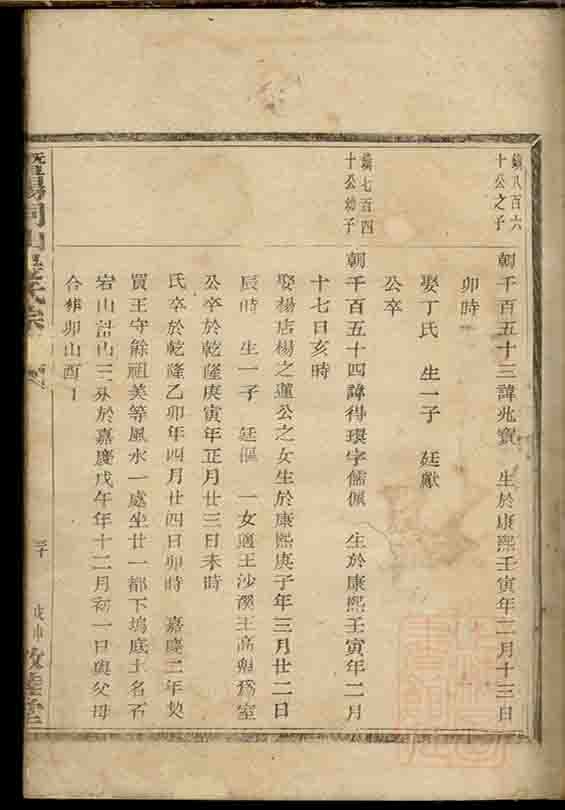 鎮八百六
十公之子
朝千百五十三諱兆寳 生於康熙壬寅年二月十三日
卯時
娶丁氏 生一子 廷獻
公卒
鎮七百四
十公幼子
朝千百五十四諱得環字儒佩 生於康熙壬寅年二月
十七日亥時
娶楊店楊之蓮公之女生於康熙庚子年三月廿二日
辰時 生一子 廷樞 一女適王沙溪王高魁爲室
公卒於乾隆庚寅年正月廿三日未時
氏卒於乾隆乙卯年四月廿四日卯時 嘉慶二年契
買王守餘祖美等風水一處坐廿一都下塢底土名石
宕山 於嘉慶戊午年十二月初一日與父母
合葬卯山酉
暨陽同山 氏宗
三十
戊申 敦睦堂